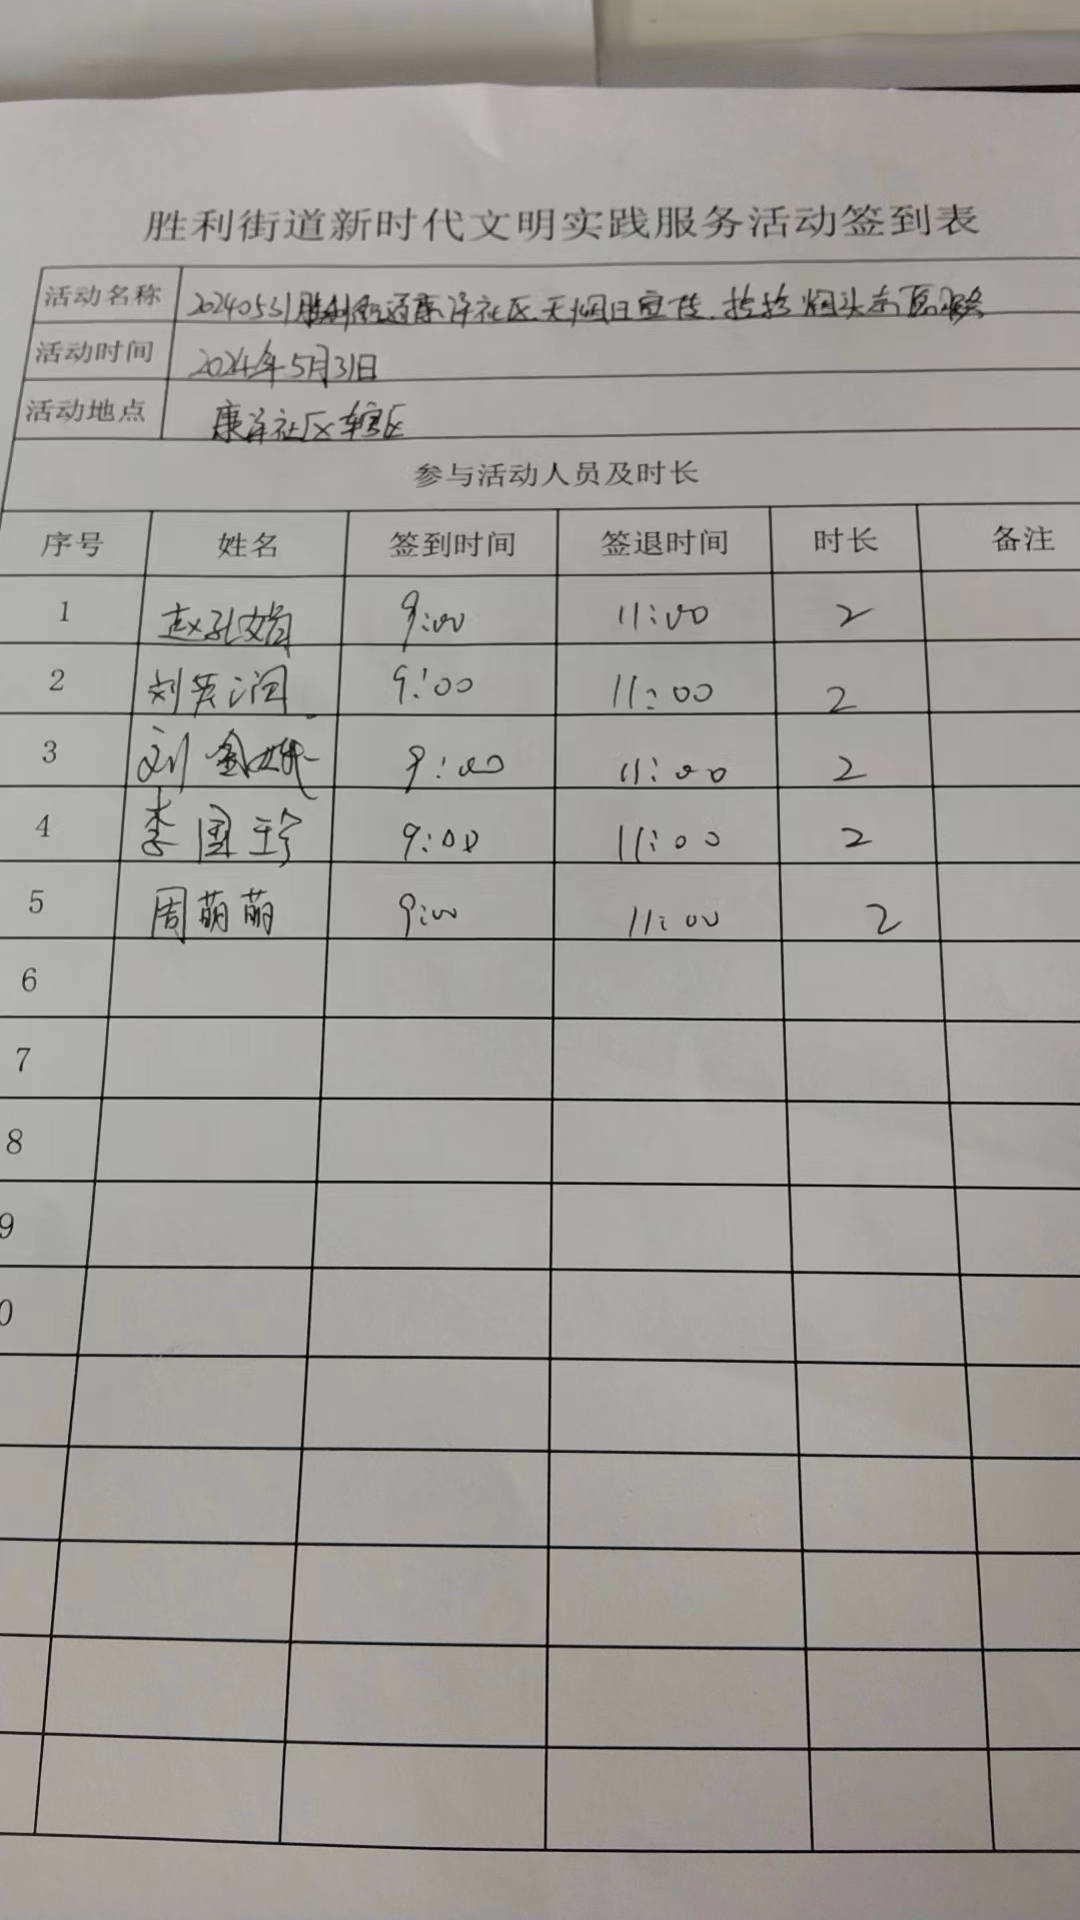 胜利街道新时代文明实践服务活动签到表
活动名称 20240531胜利街道康泽社区无烟日宣传、捡拾烟头
活动时间 2024年5月31日
活动地点 康泽社区辖区
参与活动人员及时长
序号 姓名 签到时间 签退时间 时长 备注
1 赵孔娟 9:00 11:00 2
2 刘 9:00 11:00 2
3 刘金 9:00 11:00 2
4 李国珍 9:00 11:00 2
5 周萌萌 9:00 11:00 2
6
7
8
9
0